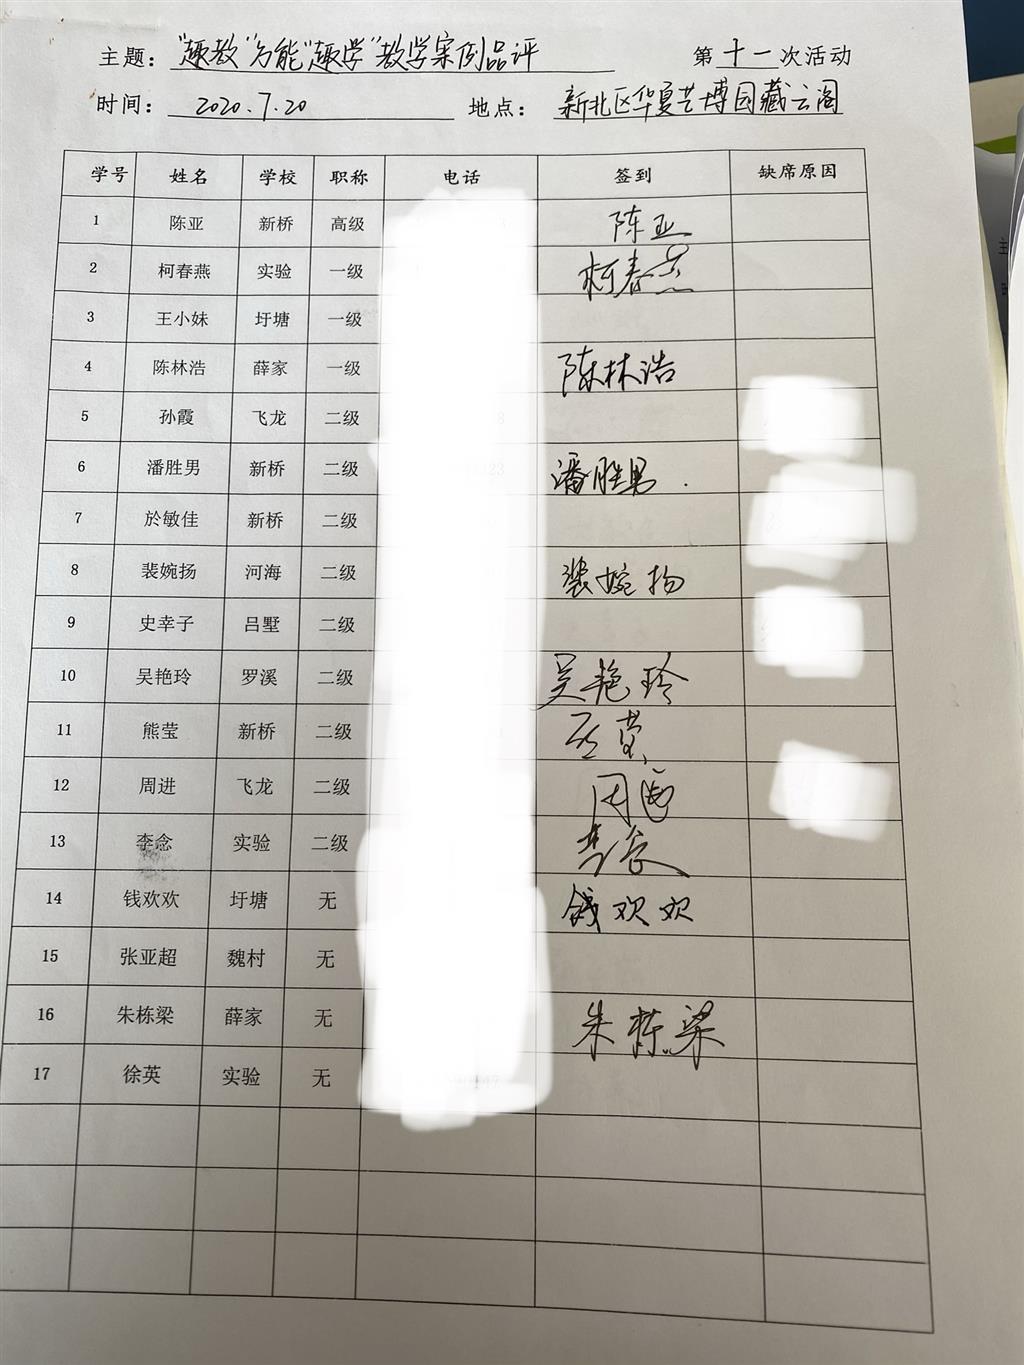 主题：“趣教”方能“趣学”教学案例品评 第十一次活动
时间：2020.7.20 地点：新北区华夏艺博园藏云阁
学号 姓名 学校 职称 电话 签到 缺席原因
1 陈亚 新桥 高级 陈亚
2 柯春燕 实验 一级 柯春燕
3 王小妹 圩塘 一级
4 陈林浩 薛家 一级 陈林浩
5 孙霞 飞龙 二级
6 潘胜男 新桥 二级 潘胜男
7 於敏佳 新桥 二级
8 裴婉扬 河海 二级 裴婉扬
9 史幸子 吕墅 二级
10 吴艳玲 罗溪 二级 吴艳玲
11 熊莹 新桥 二级 熊莹
12 周进 飞龙 二级 周进
13 李念 实验 二级 李念
14 钱欢欢 圩塘 无 钱欢欢
15 张亚超 魏村 无
16 朱栋梁 薛家 无 朱栋梁
17 徐英 实验 无